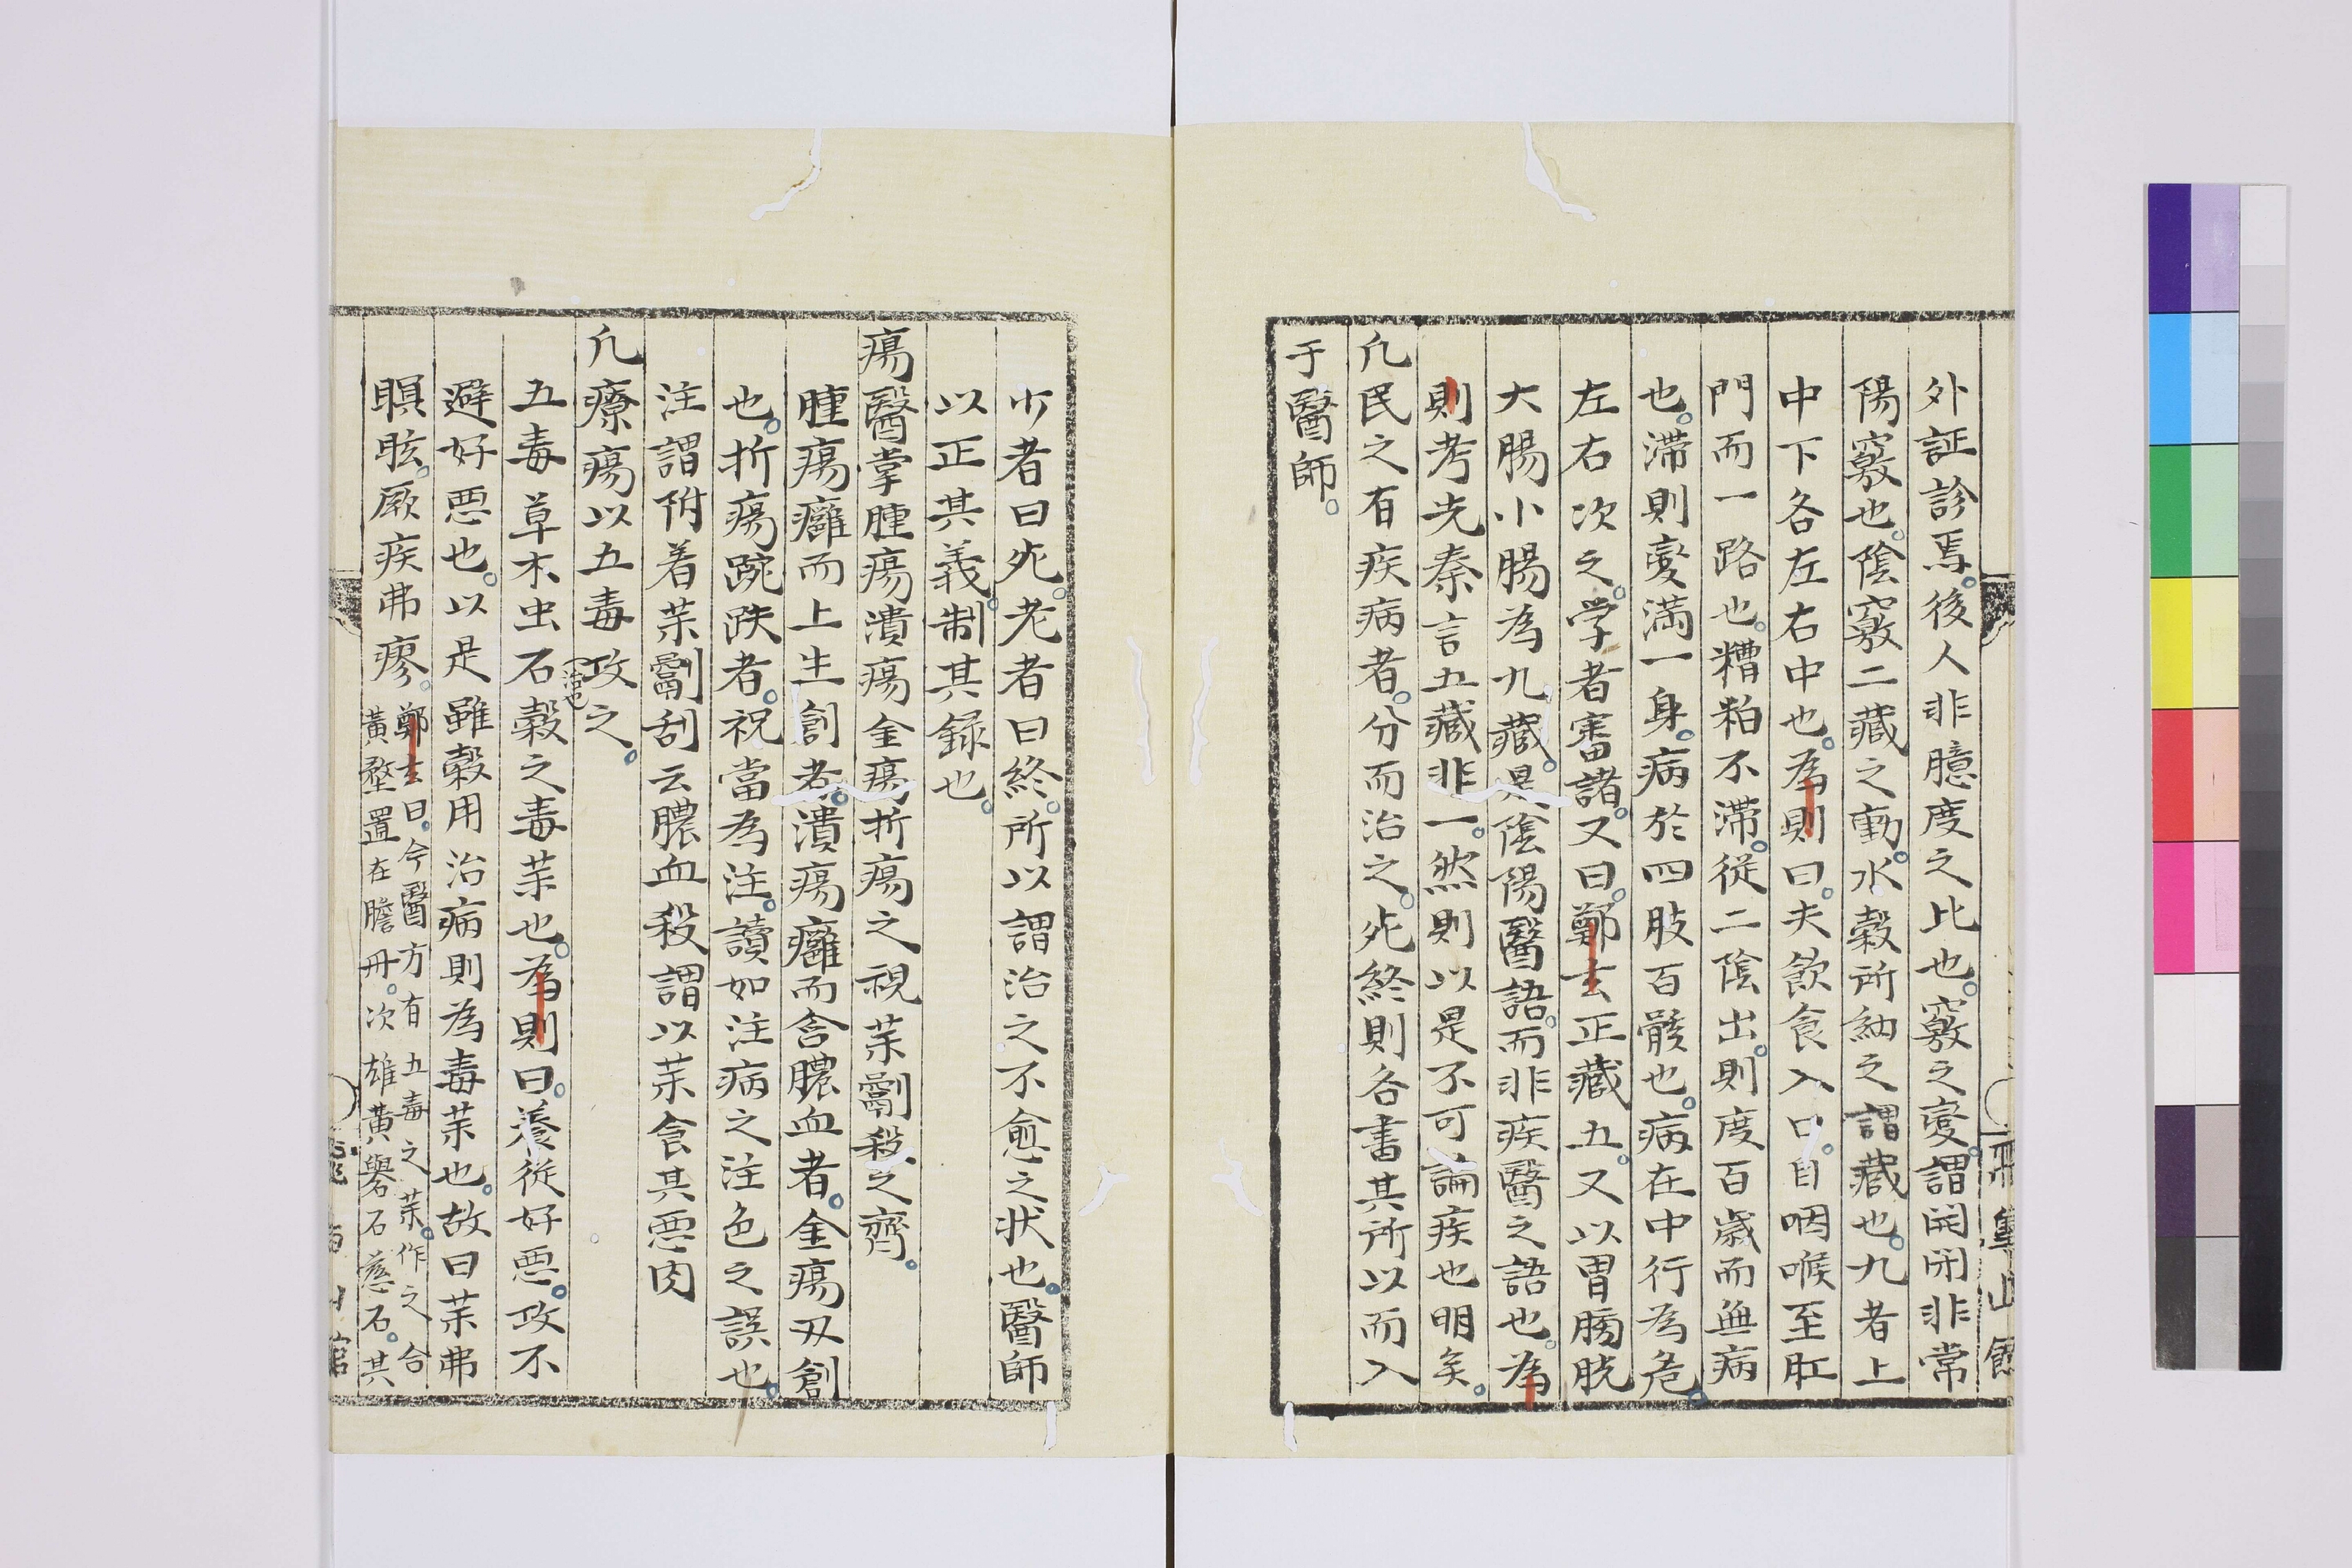 外証診焉。後人非臆度之比也。竅之變。謂開閉非常
陽竅也。陰竅二藏之動。水穀所納之謂藏也。九者上
中下各左右中也。為則曰。夫飲食入口。自咽喉至肛
門而一路也。糟粕不滯。從二陰出。則度百歲而無病
也。滯則變滿一身。病於四肢百骸也。病在中行為危。
左右次之。学者審諸。又曰。鄭玄正藏五。又以胃膀胱
大腸小腸為九藏。是陰陽醫語。而非疾醫之語也。為
則考先秦言五藏非一。然則以是不可論疾也明矣。
凢民之有疾病者。分而治之。死終則各書其所以而入
于醫師。
少者曰死。老者曰終。所以謂治之不愈之狀也。醫師
以正其義。制其録也。
瘍醫掌腫瘍潰瘍金瘍折瘍之祝茉劀殺之齊。
腫瘍癰而上生創者。潰瘍癰而含膿血者。金瘍刃創
也。折瘍踠跌者。祝當為注。讀如注病之注色之誤也。
注謂附着茉劀刮云膿血殺謂以茉食其悪肉
凢療瘍以五毒攻之。
五毒草木虫石穀之毒茉也。為則曰。養從好悪。攻不
避好悪也。以是雖穀用治病則為毒茉也。故曰茉弗
瞑眩。厥疾弗瘳。
鄭玄曰。今醫方有五毒之茉。作之合
黃堥置在膽冊。次雄黃礜石慈石。其